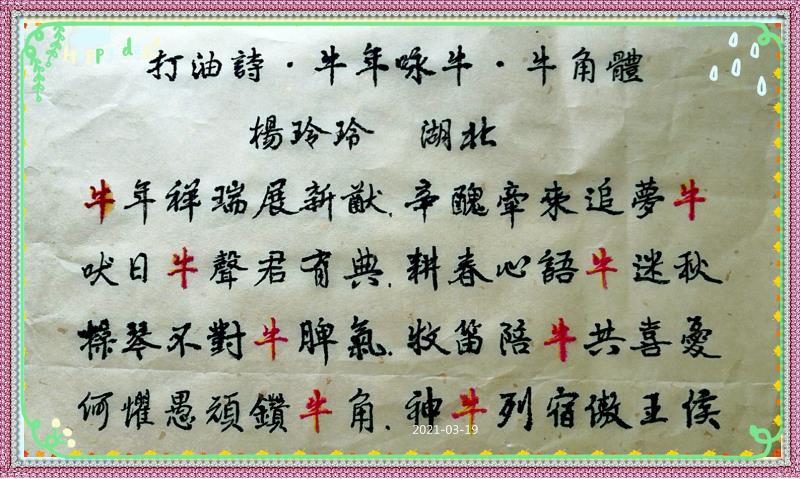 打油詩·牛年咏牛·牛角體
楊玲玲 湖北
牛年祥瑞展新猷,辛醜牽來追夢牛
吠日牛聲君有典,耕春心語牛迷秋
操琴不對牛脾氣,牧笛陪牛共喜憂
何懼愚頑鑽牛角,神牛列宿傲王侯
2021-03-19